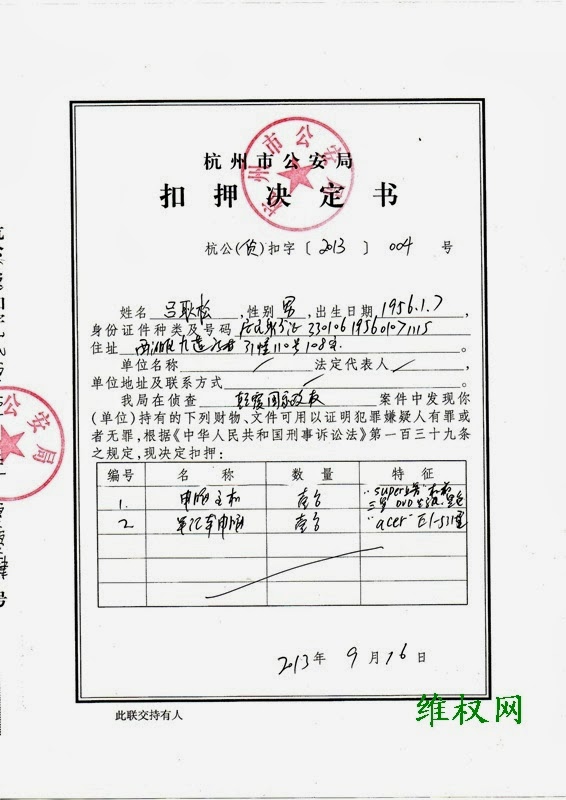 杭州市公安局
扣押决定书
杭公( )扣字〔2013〕004号
姓名 吕耿松 ,性别 男 ,出生日期 1956.1.7
身份证件种类及号码 居民身份证 330106195601071115
住址 110号108室 。
单位名称 / 法定代表人 / ,
单位地址及联系方式 / 。
我局在侦查 颠覆国家政权 案件中发现你
(单位)持有的下列财物、文件可用以证明犯罪嫌疑人有罪或
者无罪,根据《中华人民共和国刑事诉讼法》第一百三十九条
之规定,现决定扣押:
编号 名称 数量 特征
1. 电脑主机 壹台 "super DVD
2 笔记本电脑 壹台 "acer" E1-531
2013年9月16日
此联交持有人
维权网
杭州市公安局
公安局